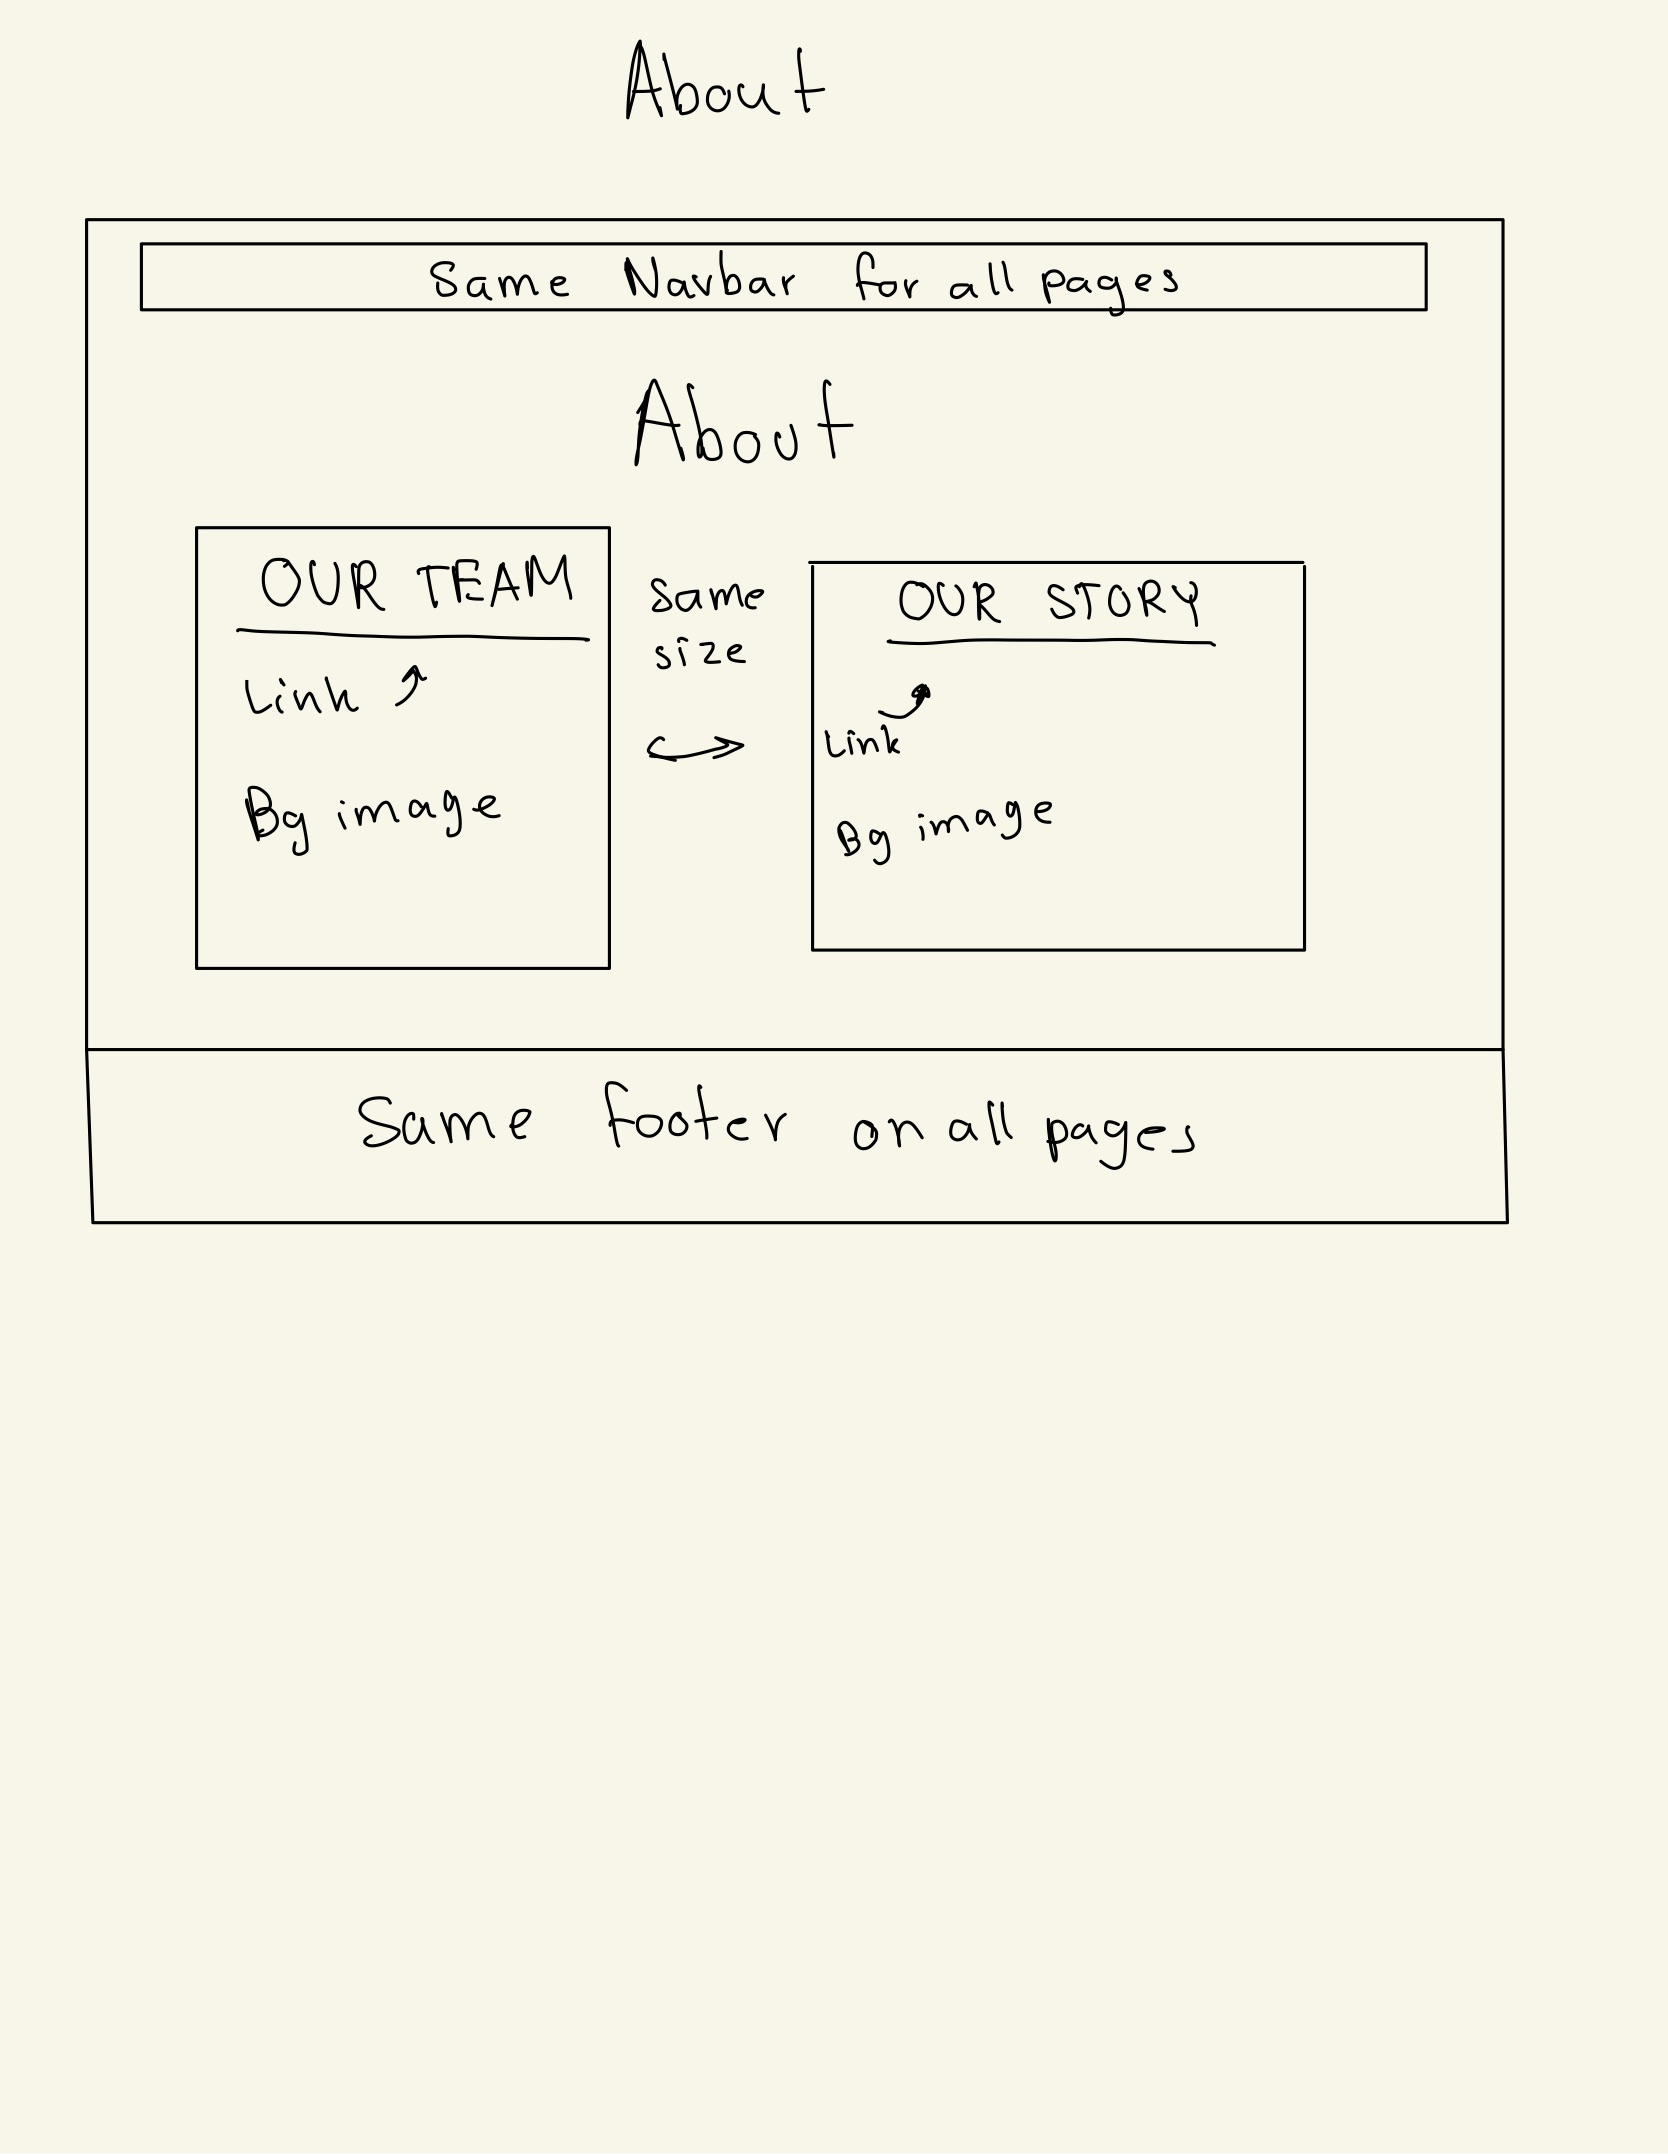 About
Same Navbar for all pages
About
OUR TEAM
Link
Bg image
Same
size
OUR STORY
Link
Bg image
Same footer on all pages